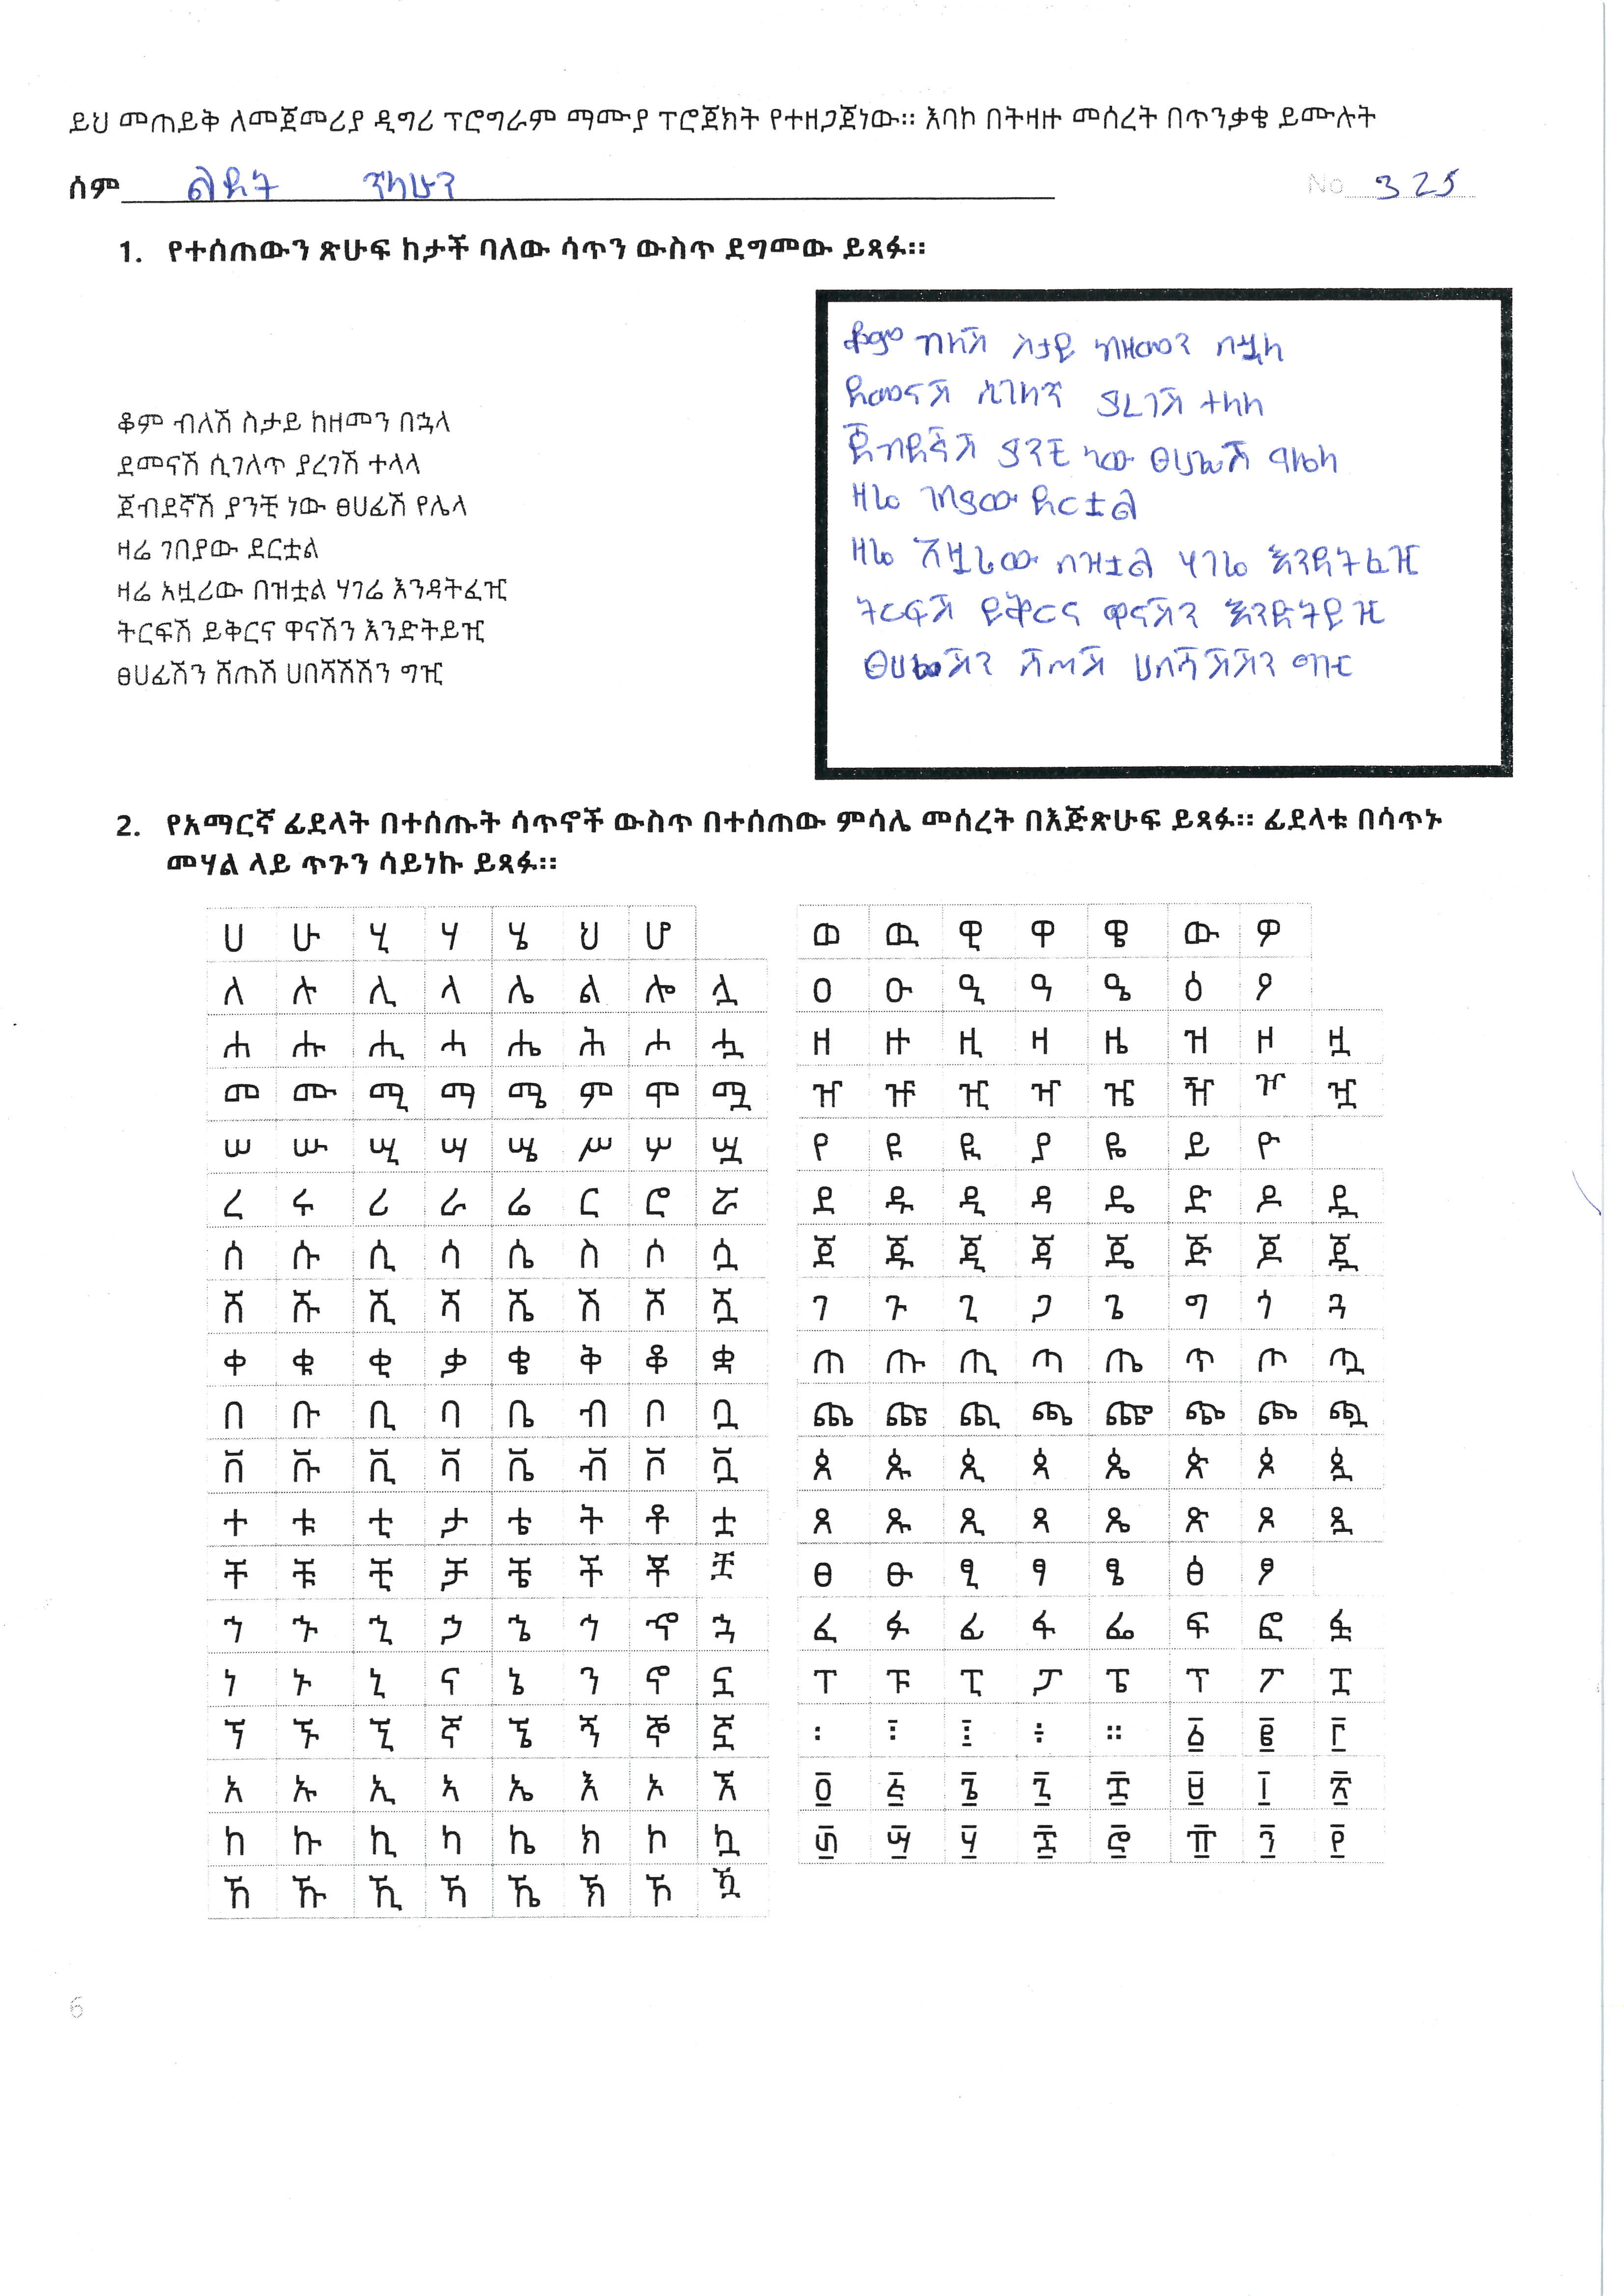 ይህ መጠይቅ ለመጀመሪያ ዲግሪ ፕሮግራም ማሙያ ፕሮጀክት የተዘጋጀነው። እባኮ በትዛዙ መሰረት በጥንቃቄ ይሙሉት
ሰም ልደት ጥላሁን No 325
1. የተሰጠውን ጽሁፍ ከታች ባለው ሳጥን ውስጥ ደግመው ይጻፉ።
ቆም ብለሽ ስታይ ከዘመን በኋላ
ደመናሽ ሲገለጥ ያረገሽ ተላላ
ጀብደኛሽ ያንቺ ነው ፀሀፊሽ የሌላ
ዛሬ ገበያው ደርቷል
ዛሬ አዟሪው በዝቷል ሃገሬ እንዳትፈዢ
ትርፍሽ ይቅርና ዋናሽን እንድትይዢ
ፀሀፊሽን ሸጠሽ ሀበሻሽሽን ግዢ
ቆም ብለሽ ስታይ ከዘመን በኋላ
ደመናሽ ሲገለጥ ያረገሽ ተላላ
ጀብደኛሽ ያንቺ ነው ፀሀፊሽ የሌላ
ዛሬ ገበያው ደርቷል
ዛሬ አዟሪው በዝቷል ሃገሬ እንዳትፈዢ
ትርፍሽ ይቅርና ዋናሽን እንድትይዢ
ፀሀፊሽን ሸጠሽ ሀበሻሽሽን ግዢ
2. የአማርኛ ፊደላት በተሰጡት ሳጥኖች ውስጥ በተሰጠው ምሳሌ መሰረት በእጅጽሁፍ ይጻፉ። ፊደላቱ በሳጥኑ
መሃል ላይ ጥጉን ሳይነኩ ይጻፉ።
ሀ ሁ ሂ ሃ ሄ ህ ሆ
ለ ሉ ሊ ላ ሌ ል ሎ ሏ
ሐ ሑ ሒ ሓ ሔ ሕ ሖ ሗ
መ ሙ ሚ ማ ሜ ም ሞ ሟ
ሠ ሡ ሢ ሣ ሤ ሥ ሦ ሧ
ረ ሩ ሪ ራ ሬ ር ሮ ሯ
ሰ ሱ ሲ ሳ ሴ ስ ሶ ሷ
ሸ ሹ ሺ ሻ ሼ ሽ ሾ ሿ
ቀ ቁ ቂ ቃ ቄ ቅ ቆ ቋ
በ ቡ ቢ ባ ቤ ብ ቦ ቧ
ቨ ቩ ቪ ቫ ቬ ቭ ቮ ቯ
ተ ቱ ቲ ታ ቴ ት ቶ ቷ
ቸ ቹ ቺ ቻ ቼ ች ቾ ቿ
ኀ ኁ ኂ ኃ ኄ ኅ ኆ ኋ
ነ ኑ ኒ ና ኔ ን ኖ ኗ
ኘ ኙ ኚ ኛ ኜ ኝ ኞ ኟ
አ ኡ ኢ ኣ ኤ እ ኦ ኧ
ከ ኩ ኪ ካ ኬ ክ ኮ ኳ
ኸ ኹ ኺ ኻ ኼ ኽ ኾ ዃ
ወ ዉ ዊ ዋ ዌ ው ዎ
ዐ ዑ ዒ ዓ ዔ ዕ ዖ
ዘ ዙ ዚ ዛ ዜ ዝ ዞ ዟ
ዠ ዡ ዢ ዣ ዤ ዥ ዦ ዧ
የ ዩ ዪ ያ ዬ ይ ዮ
ደ ዱ ዲ ዳ ዴ ድ ዶ ዷ
ጀ ጁ ጂ ጃ ጄ ጅ ጆ ጇ
ገ ጉ ጊ ጋ ጌ ግ ጎ ጓ
ጠ ጡ ጢ ጣ ጤ ጥ ጦ ጧ
ጨ ጩ ጪ ጫ ጬ ጭ ጮ ጯ
ጰ ጱ ጲ ጳ ጴ ጵ ጶ ጷ
ጸ ጹ ጺ ጻ ጼ ጽ ጾ ጿ
ፀ ፁ ፂ ፃ ፄ ፅ ፆ
ፈ ፉ ፊ ፋ ፌ ፍ ፎ ፏ
ፐ ፑ ፒ ፓ ፔ ፕ ፖ ፗ
፡ ፣ ፤ ÷ ። ፩ ፪ ፫
፬ ፭ ፮ ፯ ፰ ፱ ፲ ፳
፴ ፵ ፶ ፷ ፸ ፹ ፺ ፻
6